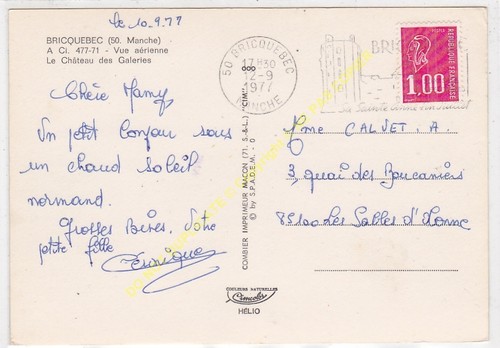 Le 10.9.77
BRICQUEBEC (50. Manche)
A Ci. 477-71 - Vue aérienne
Le Château des Galeries
Chère Mamy
Un petit bonjour sous
un chaud soleil
normand.
Grosses Bises. Votre
petite fille
COMBIER IMPRIMEUR MACON (71. S.-&-L.) "CIM"
© by S.P.A.D.E.M. - 0
COULEURS NATURELLES
HÉLIO
50 BRICQUEBEC
17H30
12-9
1977
MANCHE
REPUBLIQUE FRANÇAISE
1,00
Mme CALVET. A.
3, quai des Boucaniers
85100 Les Sables d'Olonne